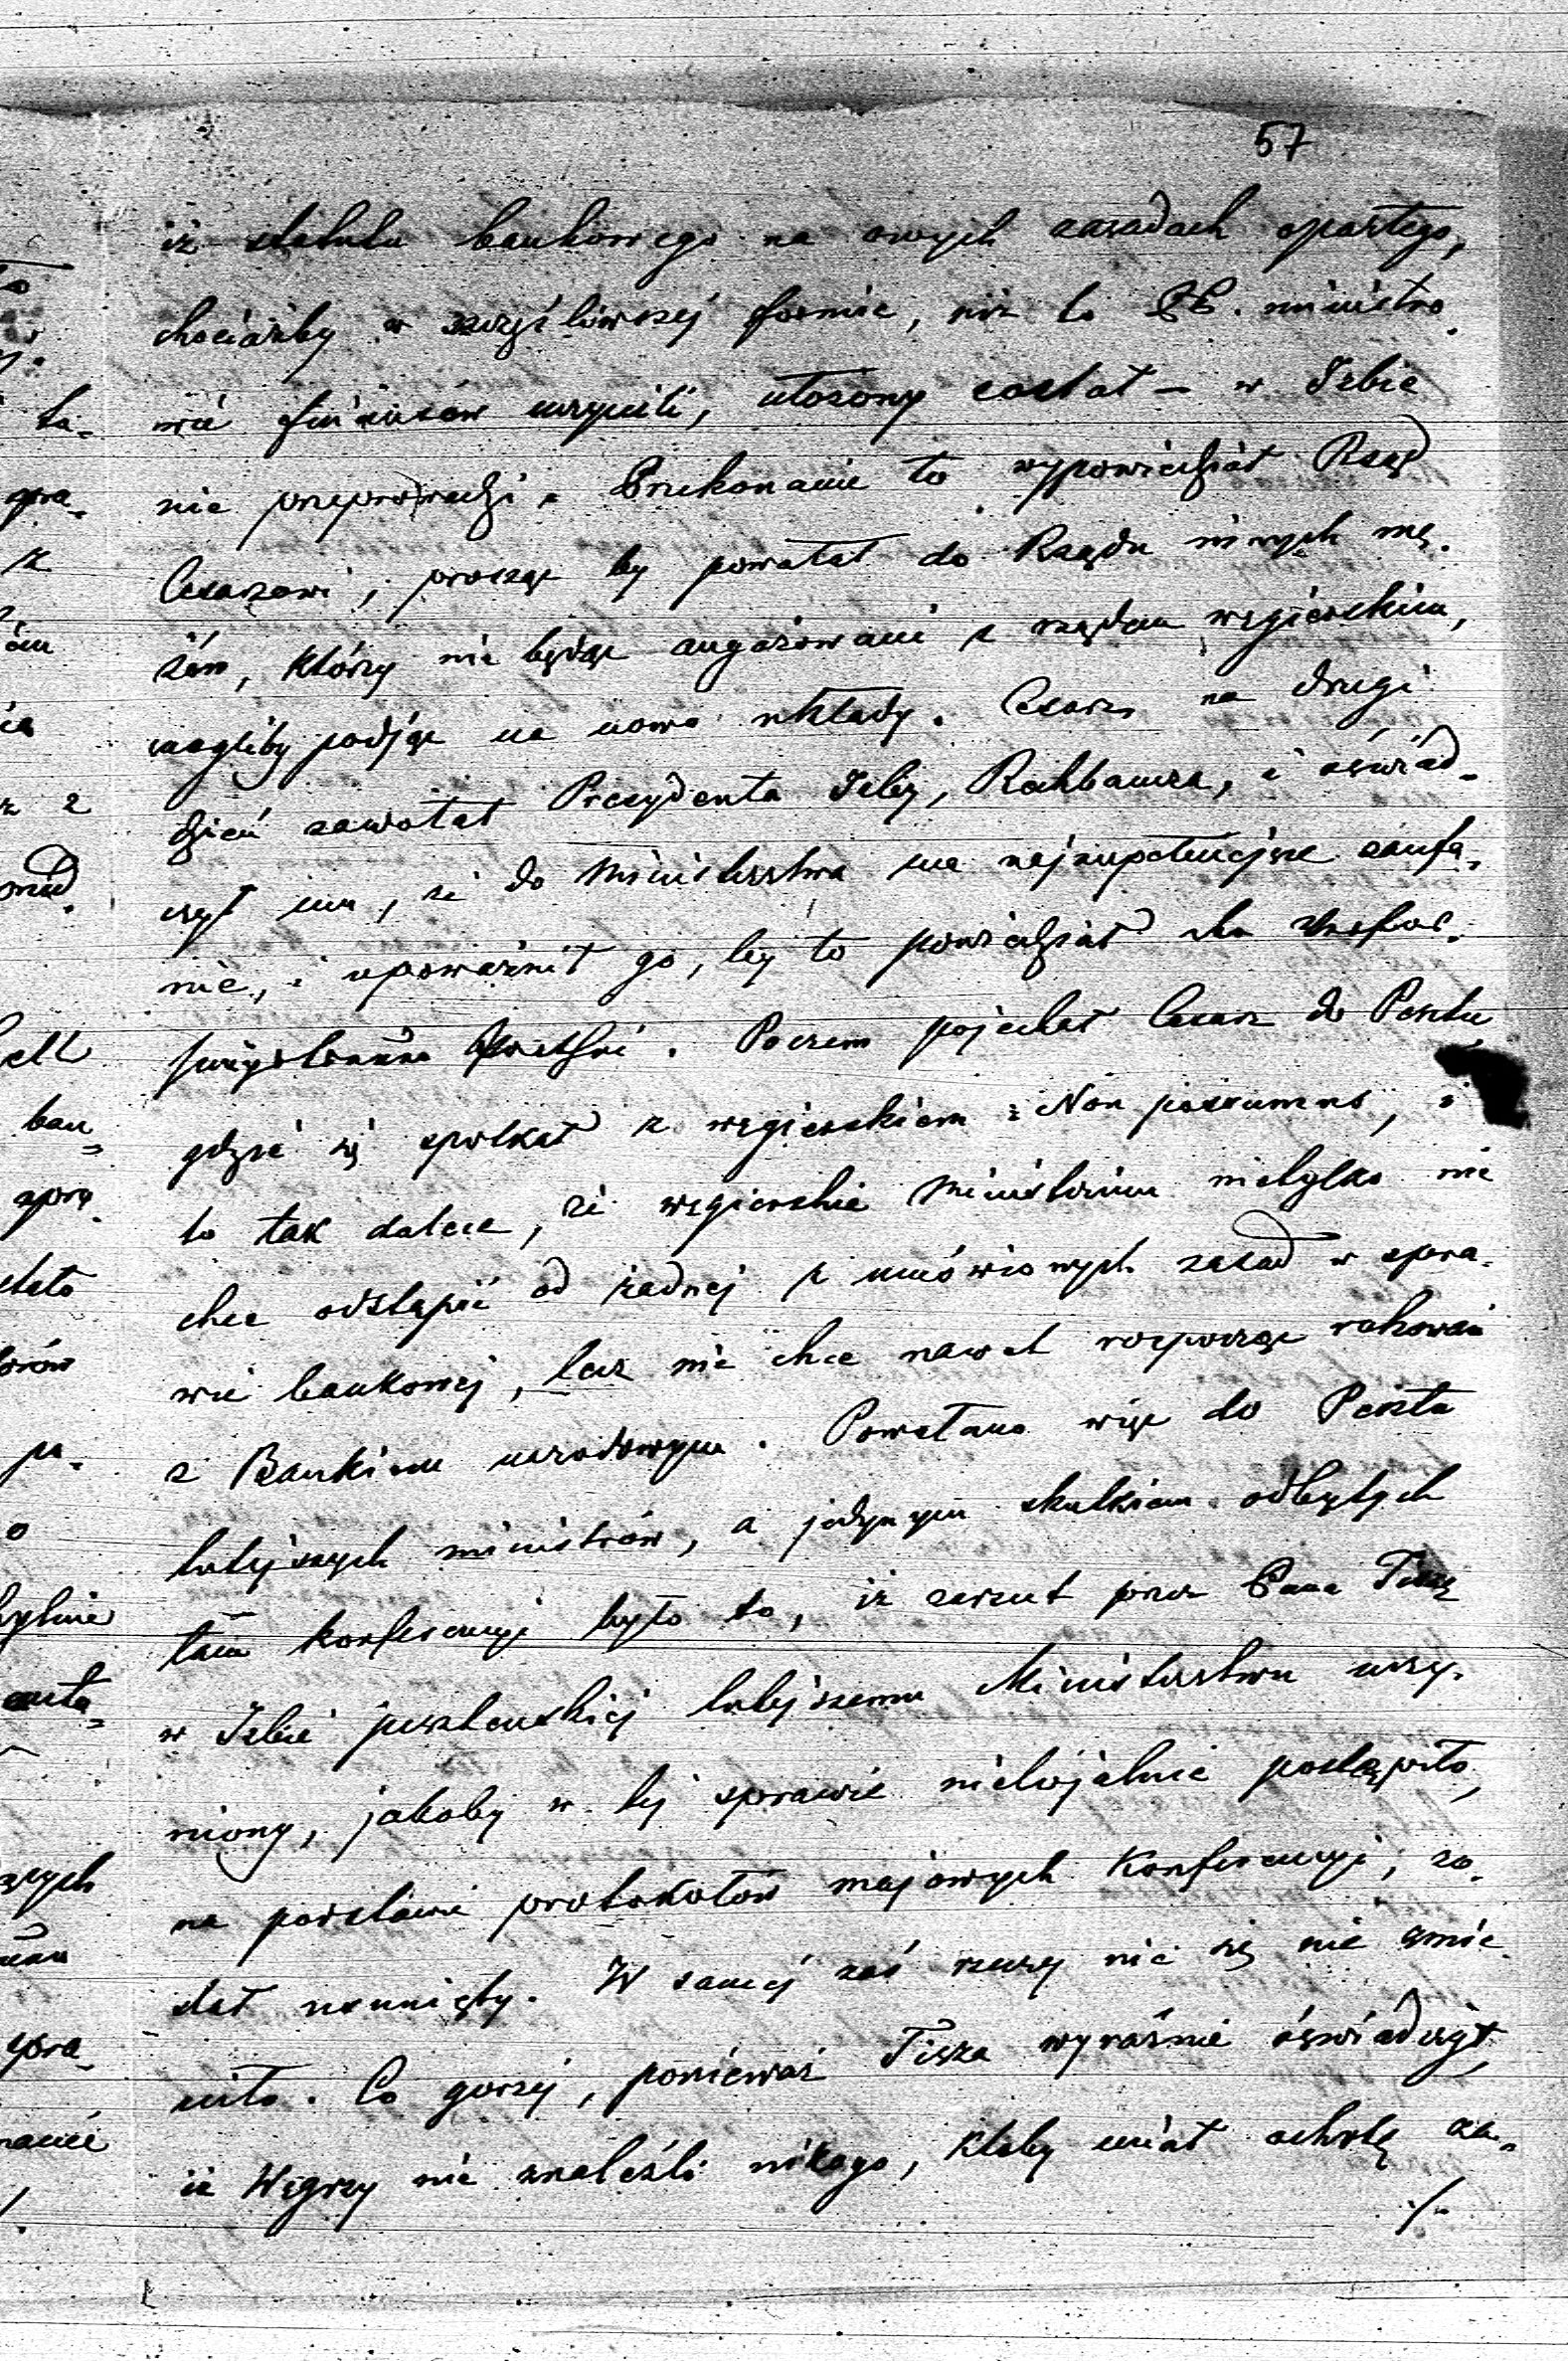 57
iż statutu bankowego na owych zasadach opartego,
chociażby w szczęśliwszej formie, niż to PP. ministro-
wie finansów uczynili, ułożony został — w Izbie
nie przeprowadzi. Przekonanie to wypowiedział Rząd
Cesarzowi, prosząc by powołał do Rządu innych mę-
żów, którzy nie będąc angażowani z rządem węgierskim,
mogliby podjąć na nowo układy. Cesarz na drugi
dzień zawołał Prezydenta Izby, Rechbauera, i oświad-
czył mu, że do Ministerstwa ma najzupełniejsze zaufa-
nie, i upoważnił go, by to powiedział
. Poczem pojechał Cesarz do Pesztu
gdzie się spotkał z węgierskiem: Non possumus, i
to tak dalece, że węgierskie Ministerium nietylko nie
chce odstąpić od żadnej z umówionych zasad w spra-
wie bankowej, lecz nie chce nawet rozpocząć rokowań
z Bankiem narodowym. Powołano więc do Pesztu
tutejszych ministrów, a jedynym skutkiem odbytych
tam konferencyj było to, iż zarzut przez Pana Tiszę
w Izbie pesztenskiej tutejszemu Ministerstwu uczy-
niony, jakoby w tej sprawie nielojalnie postąpiło,
na podstawie protokołów majowych konferencyj, zo-
stał usunięty. W samej zaś rzeczy nic się nie zmie-
niło. Co gorzej, ponieważ Tisza wyraźnie oświadczył,
iż Węgrzy nie znaleźli nikogo, ktoby miał ochotę za-
./.